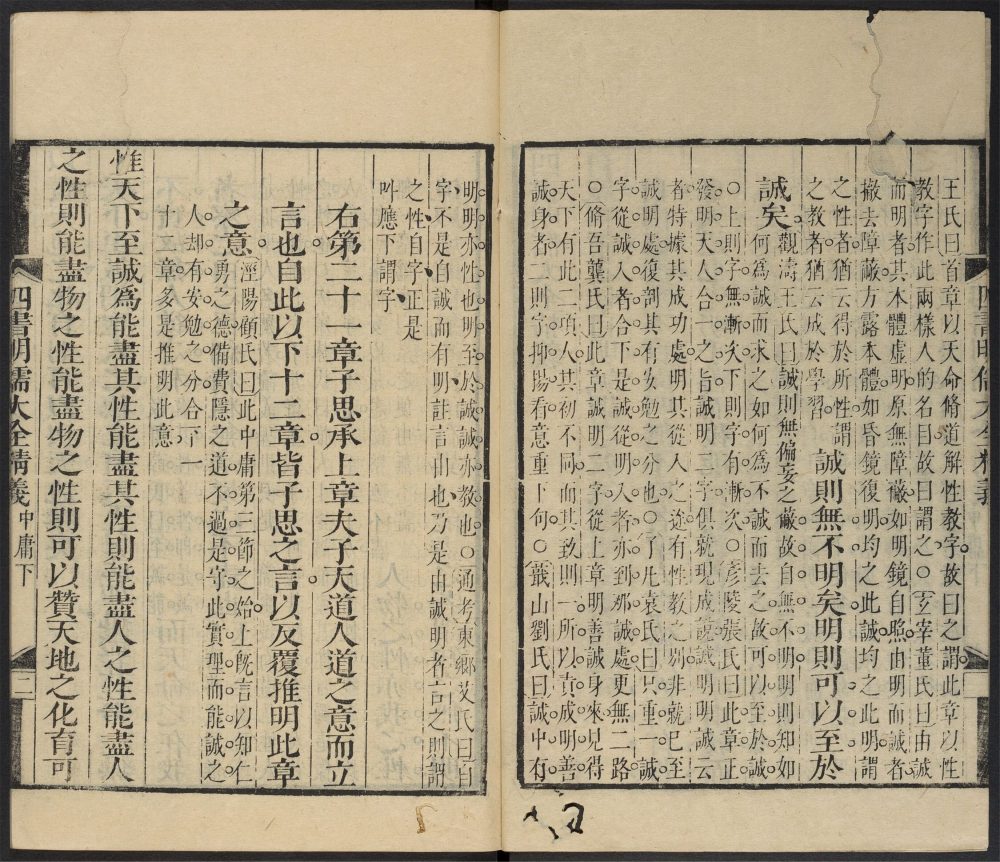 王氏曰首章以天命脩道解性教字故曰之謂此章以性
教字作此兩樣人的名目故曰謂之○玄宰董氏曰由誠
而明者其本體虛明原無障蔽如明鏡自照由明而誠者
撤去障蔽方露本體如昏鏡復明均之此誠均之此明謂
之性者猶云得於所性謂
之教者猶云成於學習
誠則無不明矣明則可以至於
誠矣
觀濤王氏曰誠則無偏妄之蔽故自無不明明則知如
何為誠而求之如何為不誠而去之故可以至於誠
○上則字無漸次下則字有漸次○彥陵張氏曰此章正
發明天人合一之旨誠明二字俱就現成說誠明明誠云
者特據其成功處明其從入之途有性教之別非就已至
誠明處復剖其有安勉之分也○了凡袁氏曰只重一誠
字從誠入者合下是誠從明入者亦到那誠處更無二路
○脩吾龔氏曰此章誠明二字從上章明善誠身來見得
天下有此二項人其初不同而其致則一所以責成明善
誠身者二則字抑揚看意重下句○蕺山劉氏曰誠中有
明明亦性也明至於誠誠亦教也○通考東鄉艾氏曰自
字不是自誠而有明註言由也乃是由誠明者言之則謂
之性自字正是
叫應下謂字
右第二十一章子思承上章夫子天道人道之意而立
言也自此以下十二章皆子思之言以反覆推明此章
之意
涇陽顧氏曰此中庸第三節之始上既言以知仁
勇之德備費隱之道不過是守此實理而能誠之
人却有安勉之分合下一
十二章多是推明此意
惟天下至誠爲能盡其性能盡其性則能盡人之性能盡人
之性則能盡物之性能盡物之性則可以贊天地之化育可
四書明儒大全精義 中庸下
二